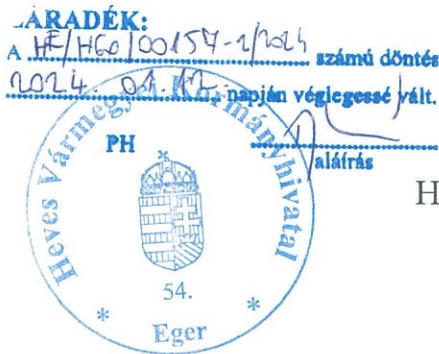 ZÁRADÉK:
A HE/HGO/00157-2/2024 számú döntés
2024. 01. 12. napján véglegessé vált.
PH
aláírás
H
Heves Vármegyei Kormányhivatal
54.
* Eger *